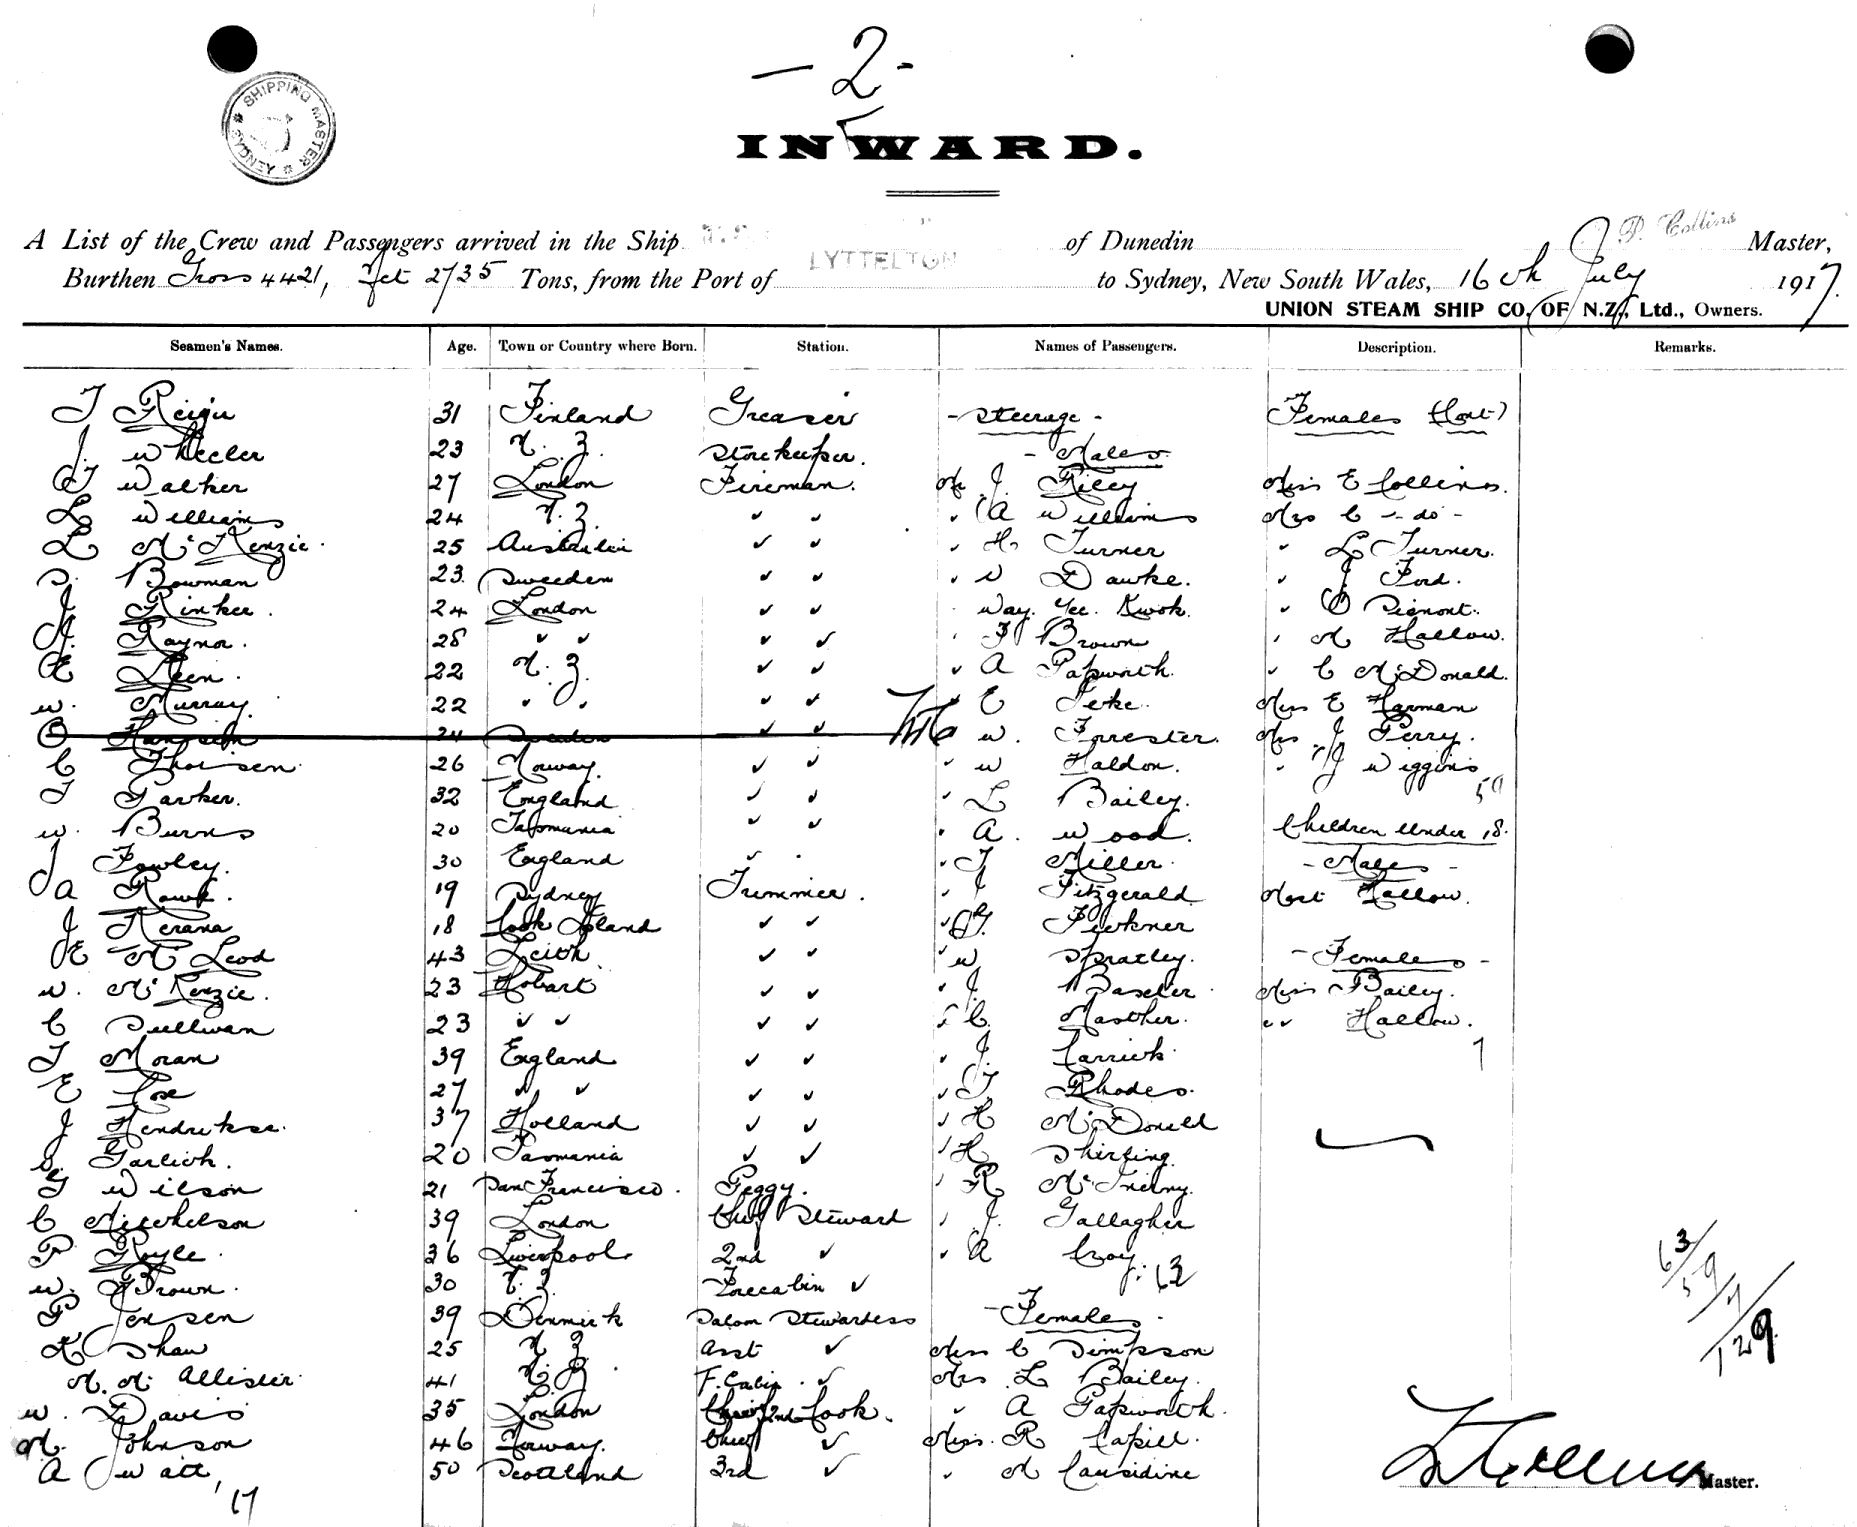 - 2 -
SHIPPING MASTER
* SYDNEY *
INWARD.
P. Collins
A List of the Crew and Passengers arrived in the Ship of Dunedin Master,
LYTTELTON
Burthen Gross 4421, Net 2735 Tons, from the Port of to Sydney, New South Wales, 16th July 1917.
UNION STEAM SHIP CO. OF N.Z., Ltd., Owners.
Seamen's Names. Age. Town or Country where Born. Station. Names of Passengers. Description. Remarks.
T 31 Finland Greaser - Steerage - Females (Cont)
J. Wheeler 23 N. Z. Storekeeper. - Males
T Walker 27 London Fireman. Mr J. Riley Miss E Collins.
L Williams 24 N. Z. ✓ ✓ ✓ A Williams Mrs C - do -
L McKenzie 25 Australia ✓ ✓ ✓ H Turner ✓ L Turner.
S. Bowman 23. Sweeden ✓ ✓ ✓ W Dawke. ✓ J Ford.
J Rinker. 24 London ✓ ✓ Way. Yee. Kwok. ✓ O
A. Raynor. 28 ✓ ✓ ✓ ✓ F Brown M Hallow.
E Leen. 22 N. Z. ✓ ✓ ✓ A Papworth. ✓ C McDonald.
W. Murray. 22 ✓ ✓ ✓ ✓ E Miss E Harman
O 24 Sweden ✓ ✓ W. Forrester. Mrs J Perry.
C Thorsen 26 Norway. ✓ ✓ W Haldon. J Wiggins
59
T Parker. 32 England ✓ ✓ L Bailey.
W. Burns 20 Tasmania ✓ ✓ A. Wood. Children Under 18.
J Fowley. 30 England ✓ T Miller - Males -
A 19 Sydney Trimmer. J Fitzgerald Mast Hallow.
J Kerana 18 Cook Island ✓ ✓ Fewkner
E McLeod 43 Leith ✓ ✓ W Spratley. - Females -
W. McKenzie. 23 Hobart ✓ ✓ J. Baxter Miss Bailey.
C Sullivan 23 ✓ ✓ ✓ ✓ C. Mather. ✓✓ Hallow.
7
T Moran 39 England ✓ ✓ J. Carrick
E Cox 27 ✓ ✓ ✓ ✓ T Rhodes.
J Hendrikse. 37 Holland ✓ ✓ H McDonell
S. Garlick. 20 Tasmania ✓ ✓ H
G Wilson 21 San Francisco. Peggy. R
C Mitchelson 39 London Chief Steward J. Gallagher
P Royle. 36 Liverpool 2nd ✓ A Croy
63
W. Brown. 30 N. Z. Forecabin ✓
P Jensen 39 Denmark Saloon Stewardess - Females -
K Shaw 25 N Z Asst ✓ Miss C Simpson
M. Mc Allister 41 N. Z. F. Cabin ✓ Mrs L Bailey.
W. Davis 35 London 2nd Cook. ✓ A Papworth.
M. Johnson 46 Norway. Chief ✓ Miss R Cahill.
A Watt 50 Scotland 3rd ✓ ✓ M Cansidine
17
63/59/7/
129
Master.